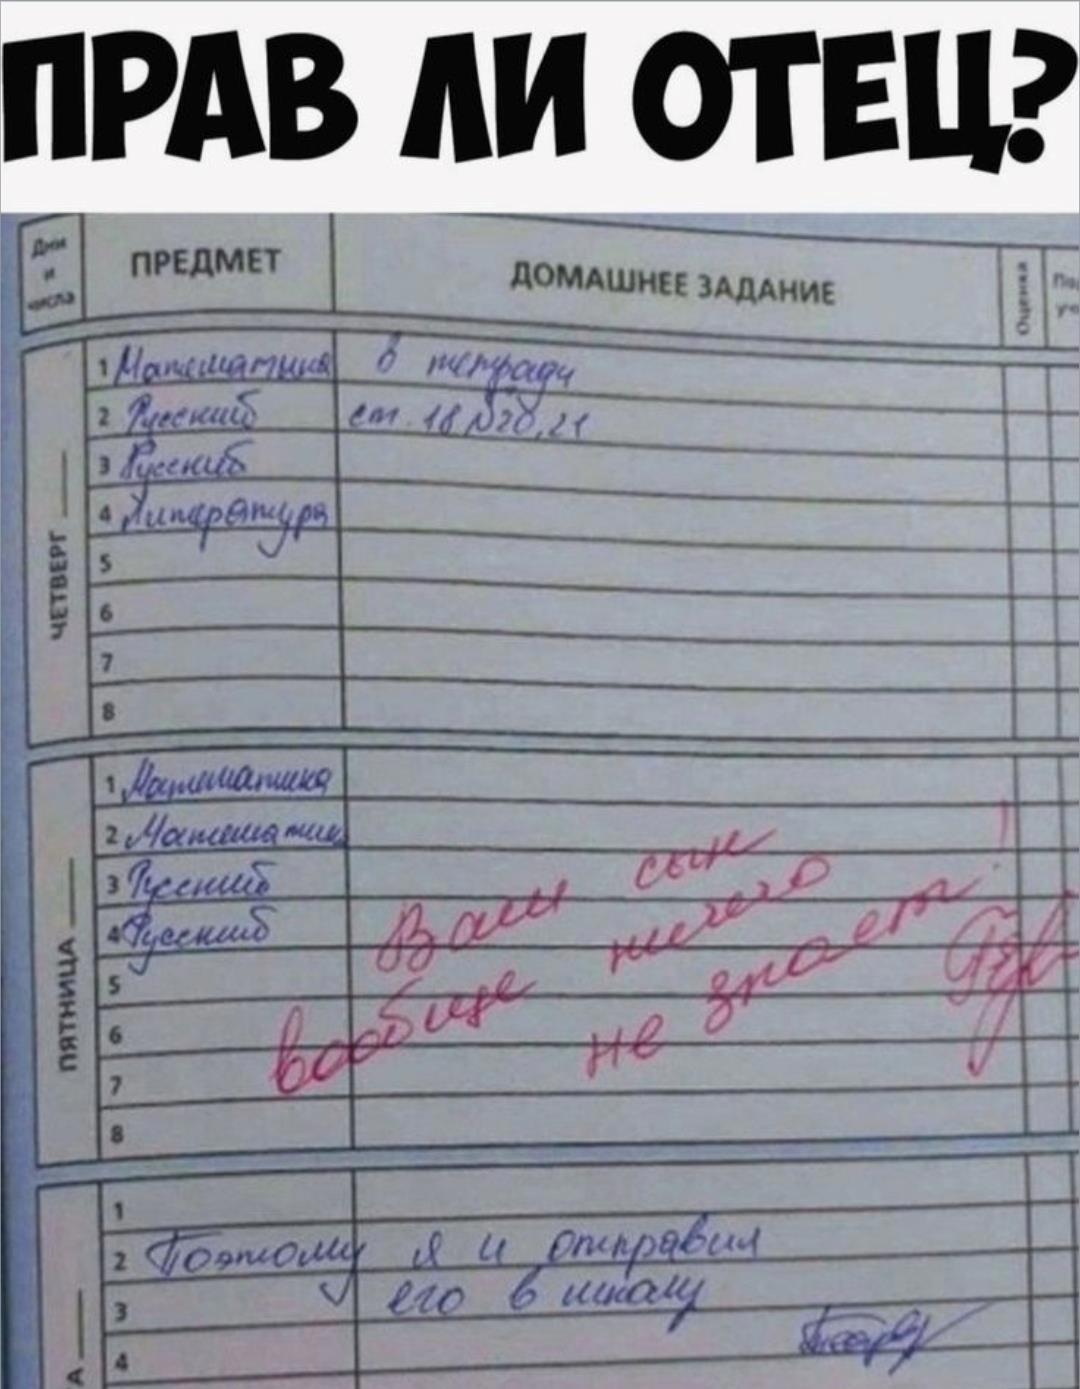 ПРАВ ЛИ ОТЕЦ?
Дни и числа
ПРЕДМЕТ
ДОМАШНЕЕ ЗАДАНИЕ
Оценка
ЧЕТВЕРГ
1 Математика в тетради
2 Русский ст. 18 №20,21
3 Русский
4 Литература
5
6
7
8
ПЯТНИЦА
1 Математика
2 Математик
3 Русский
4 Русский
5
6
7
8
Ваш сын
вообще ничего
не знает!
1
2 Поэтому я и отправил
3 его в школу
4